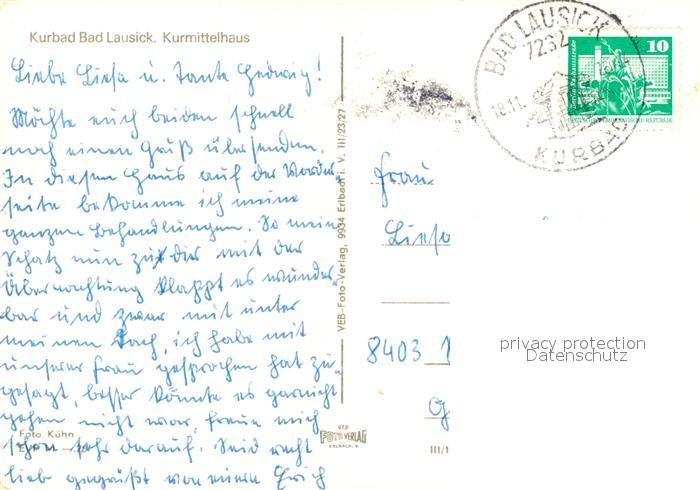 Kurbad Bad Lausick. Kurmittelhaus
Liebe Liesa u. Tante Hedwig!
Möchte euch beiden schnell
noch einen Gruß übersenden.
In diesem Haus auf der Vorder-
seite bekomme ich meine
ganzen Behandlungen. So mein
Schatz nun zu dir mit der
Übernachtung klappt es wunder-
bar und zwar mit unter
meinen Dach, ich habe mit
unserer Frau gesprochen hat zu-
gesagt, besser könnte es garnicht
gehen nicht war, freue mich
schon sehr darauf. Seid recht
lieb gegrüßt von euern Erich
Foto Kühn
VEB-Foto-Verlag, 9934 Erlbach i. V. III/23/27
FOTO VERLAG
ERLBACH, V.
III/1
BAD LAUSICK
7232
18.11.
KURBAD
10
DEUTSCHE DEMOKRATISCHE REPUBLIK
Frau
Liesa
8403 1
G
privacy protection
Datenschutz